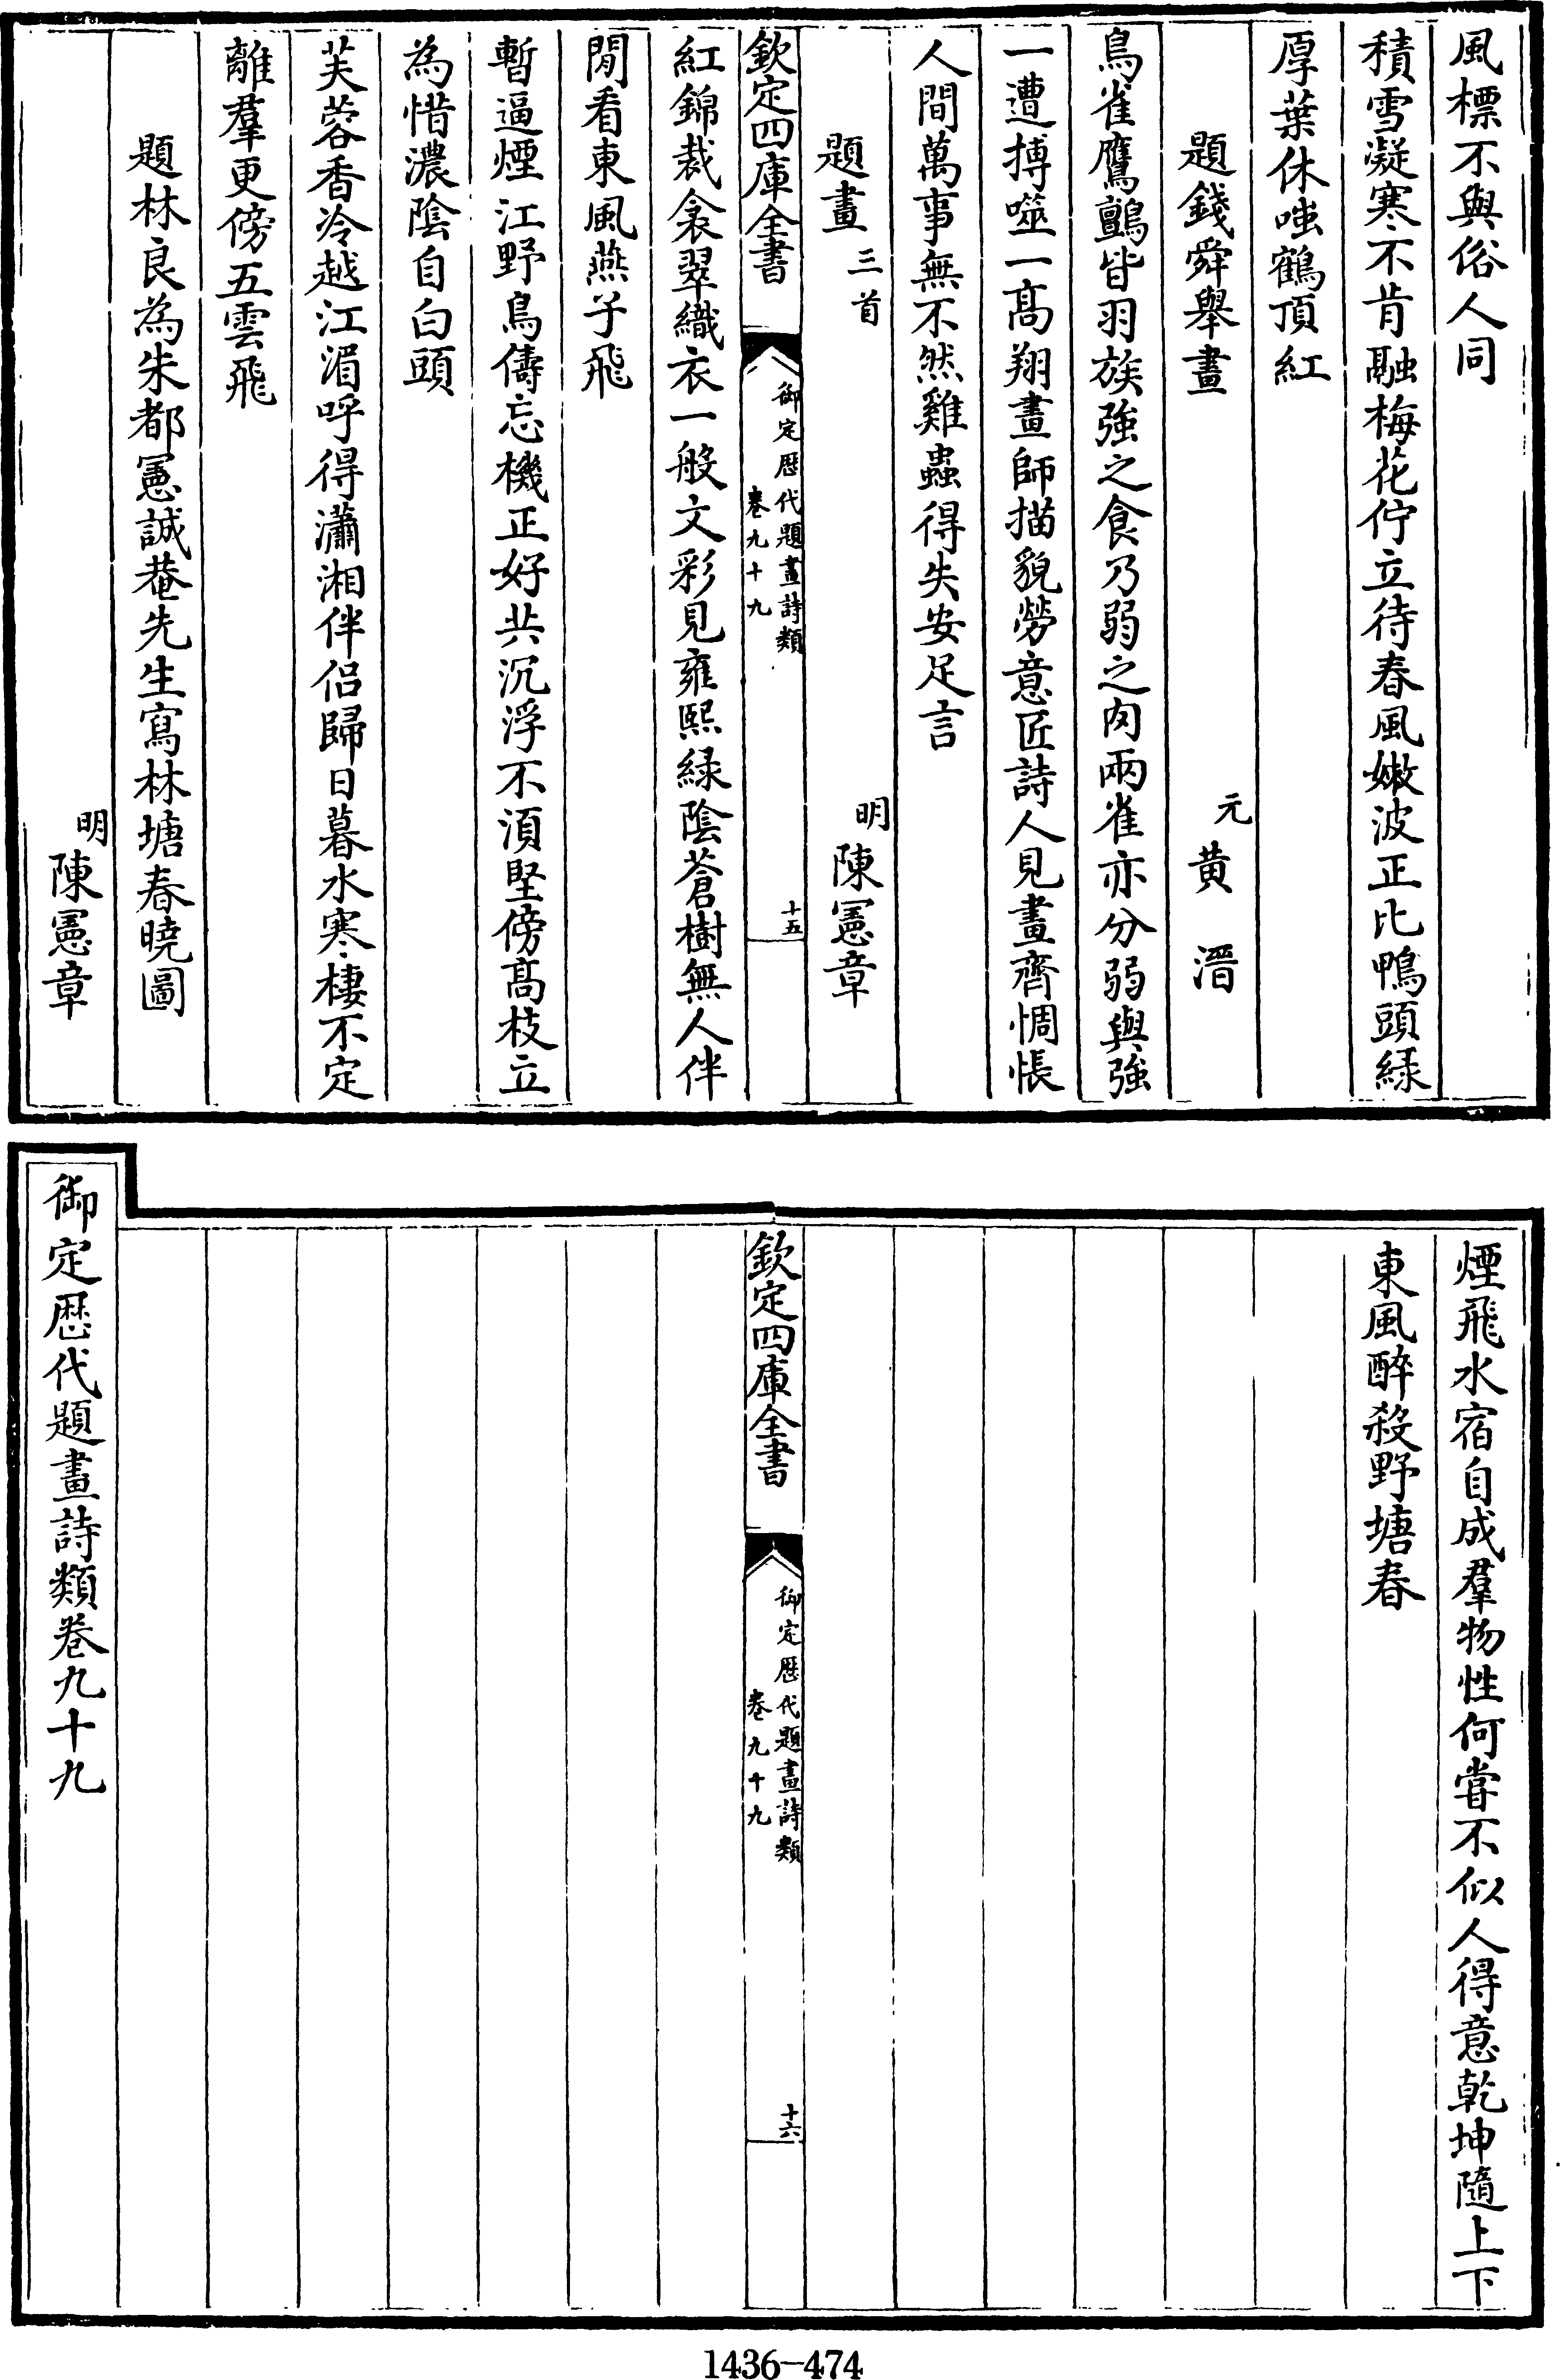 風標不與俗人同
積雪凝寒不肯融梅花佇立待春風嫩波正比鴨頭緑
厚葉休嗤鶴頂紅
題錢舜舉畫
元黄溍
鳥雀鷹鸇皆羽族強之食乃弱之肉兩雀亦分弱與強
一遭搏噬一髙翔畫師描貌勞意匠詩人見畫齊惆悵
人間萬事無不然雞蟲得失安足言
題畫三首
明陳憲章
欽定四庫全書
御定歴代題畫詩類
卷九十九
十五
紅錦裁衾翠織衣一般文彩見雍熙緑陰蒼樹無人伴
閒看東風燕子飛
暫逼煙江野鳥儔忘機正好共沉浮不湏堅傍髙枝立
為惜濃陰自白頭
芙蓉香冷越江湄呼得瀟湘伴侣歸日暮水寒棲不定
離羣更傍五雲飛
題林良為朱都憲誠菴先生寫林塘春曉圖
明陳憲章
煙飛水宿自成羣物性何甞不似人得意乾坤隨上下
東風醉殺野塘春
欽定四庫全書
御定歴代題畫詩類
卷九十九
十六
御定歴代題畫詩類卷九十九
1436-474